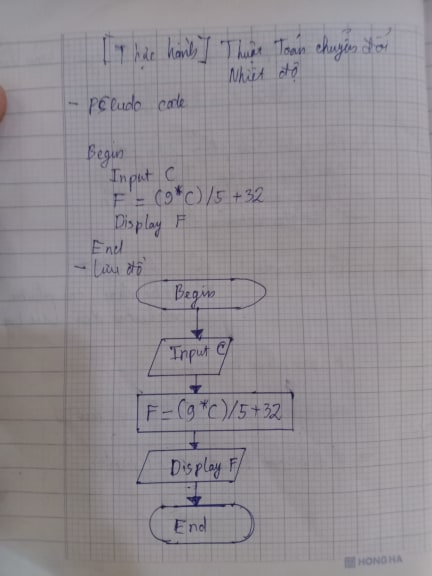 [Thực hành] Thuật Toán chuyển đổi
Nhiệt độ
- Pseudo code
Begin
Input C
F = (9*C)/5 + 32
Display F
End
- Lưu đồ
Begin
Input C
F = (9*C)/5+32
Display F
End
HONG HA